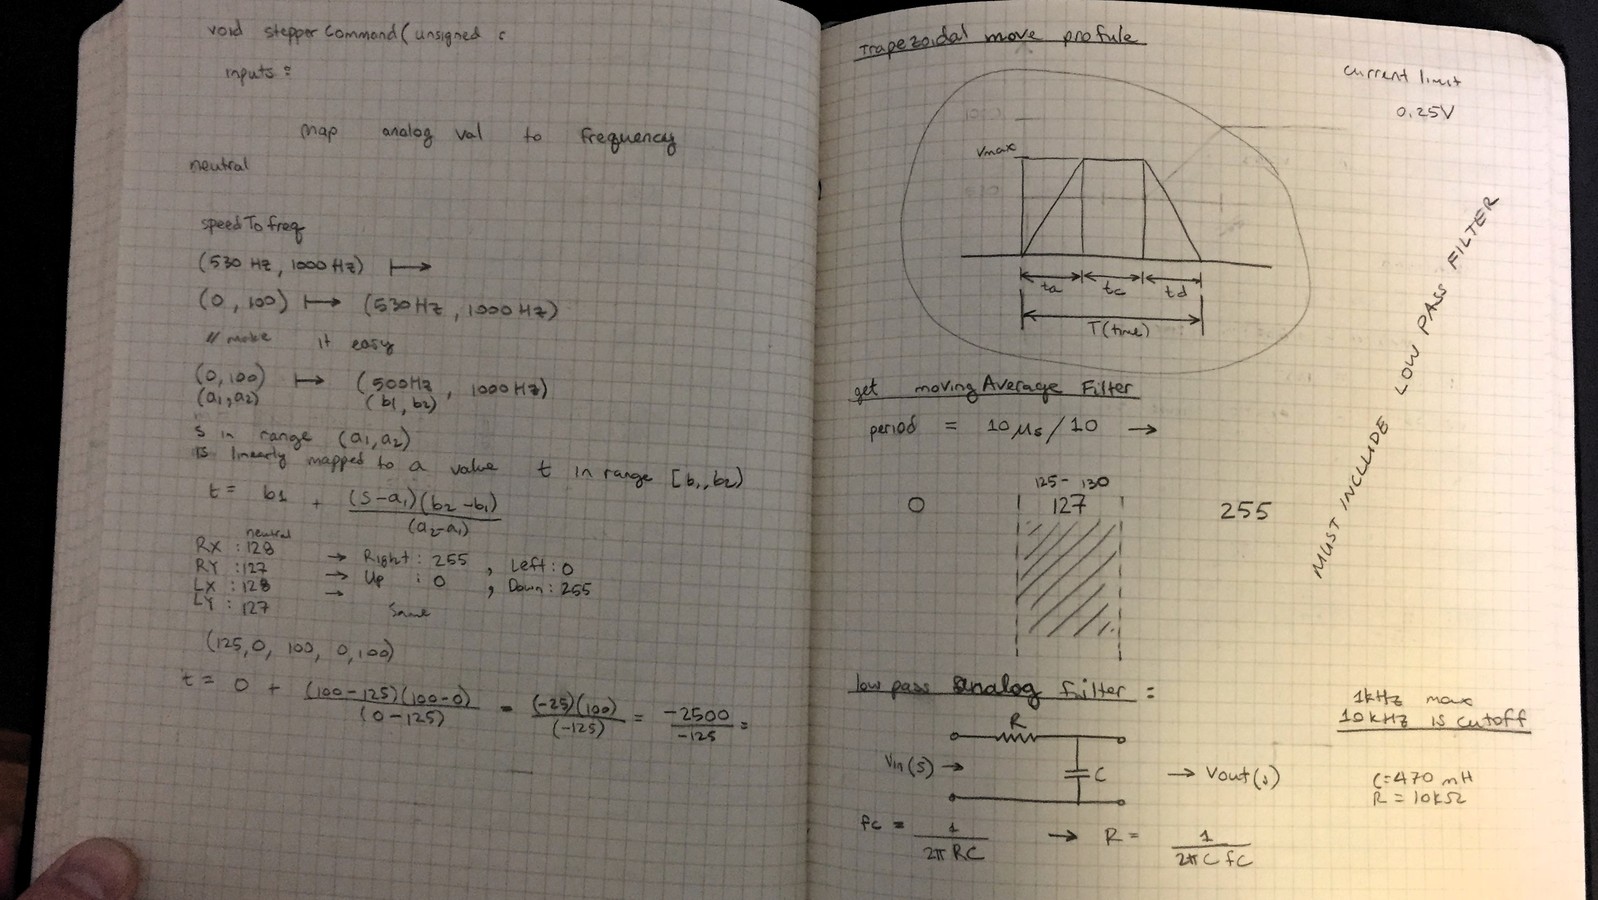 void stepperCommand( unsigned c
inputs :
map analog val to frequency
neutral
speedToFreq
(530 Hz, 1000 Hz) ↦
(0, 100) ↦ (530Hz, 1000Hz)
// make it easy
(0,100) ↦ (500Hz, 1000Hz)
(a1,a2) (b1,b2)
s in range (a1,a2)
is linearly mapped to a value t in range [b1,b2)
t = b1 + (s-a1)(b2-b1) / (a2-a1)
neutral
RX : 128 → Right : 255, Left : 0
RY : 127 → Up : 0, Down : 255
LX : 128 →
LY : 127 Same
(125,0, 100, 0,100)
t = 0 + (100-125)(100-0) / (0-125) = (-25)(100) / (-125) = -2500 / -125 =
Trapezoidal move profule
current limit
0.25V
Vmax
ta tc td
T(time)
MUST INCLUDE LOW PASS FILTER
get movingAverage Filter
period = 10 μs/10 →
125 - 130
0 127 255
low pass analog filter :
1kHz max
10kHz is cutoff
R
Vin(s) → C → Vout(s)
C=470 mH
R = 10kΩ
fc = 1 / 2π RC → R = 1 / 2πC fC